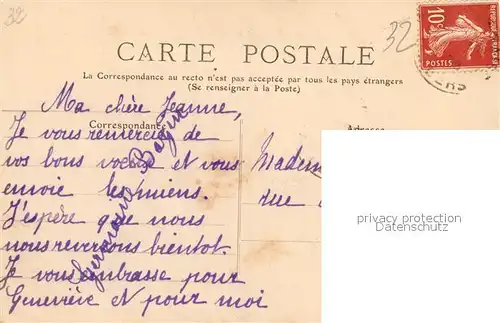 32
32
10c
POSTES
CARTE POSTALE
La Correspondance au recto n'est pas acceptée par tous les pays étrangers
(Se renseigner à la Poste)
Correspondance
Adresse
Ma chère Jeanne,
Je vous remercie de
vos bons voeux et vous
envoie les miens.
J'espère que nous
nous reverrons bientôt.
Je vous embrasse pour
Geneviève et pour moi
Germaine
Madem
rue
ERS
privacy protection